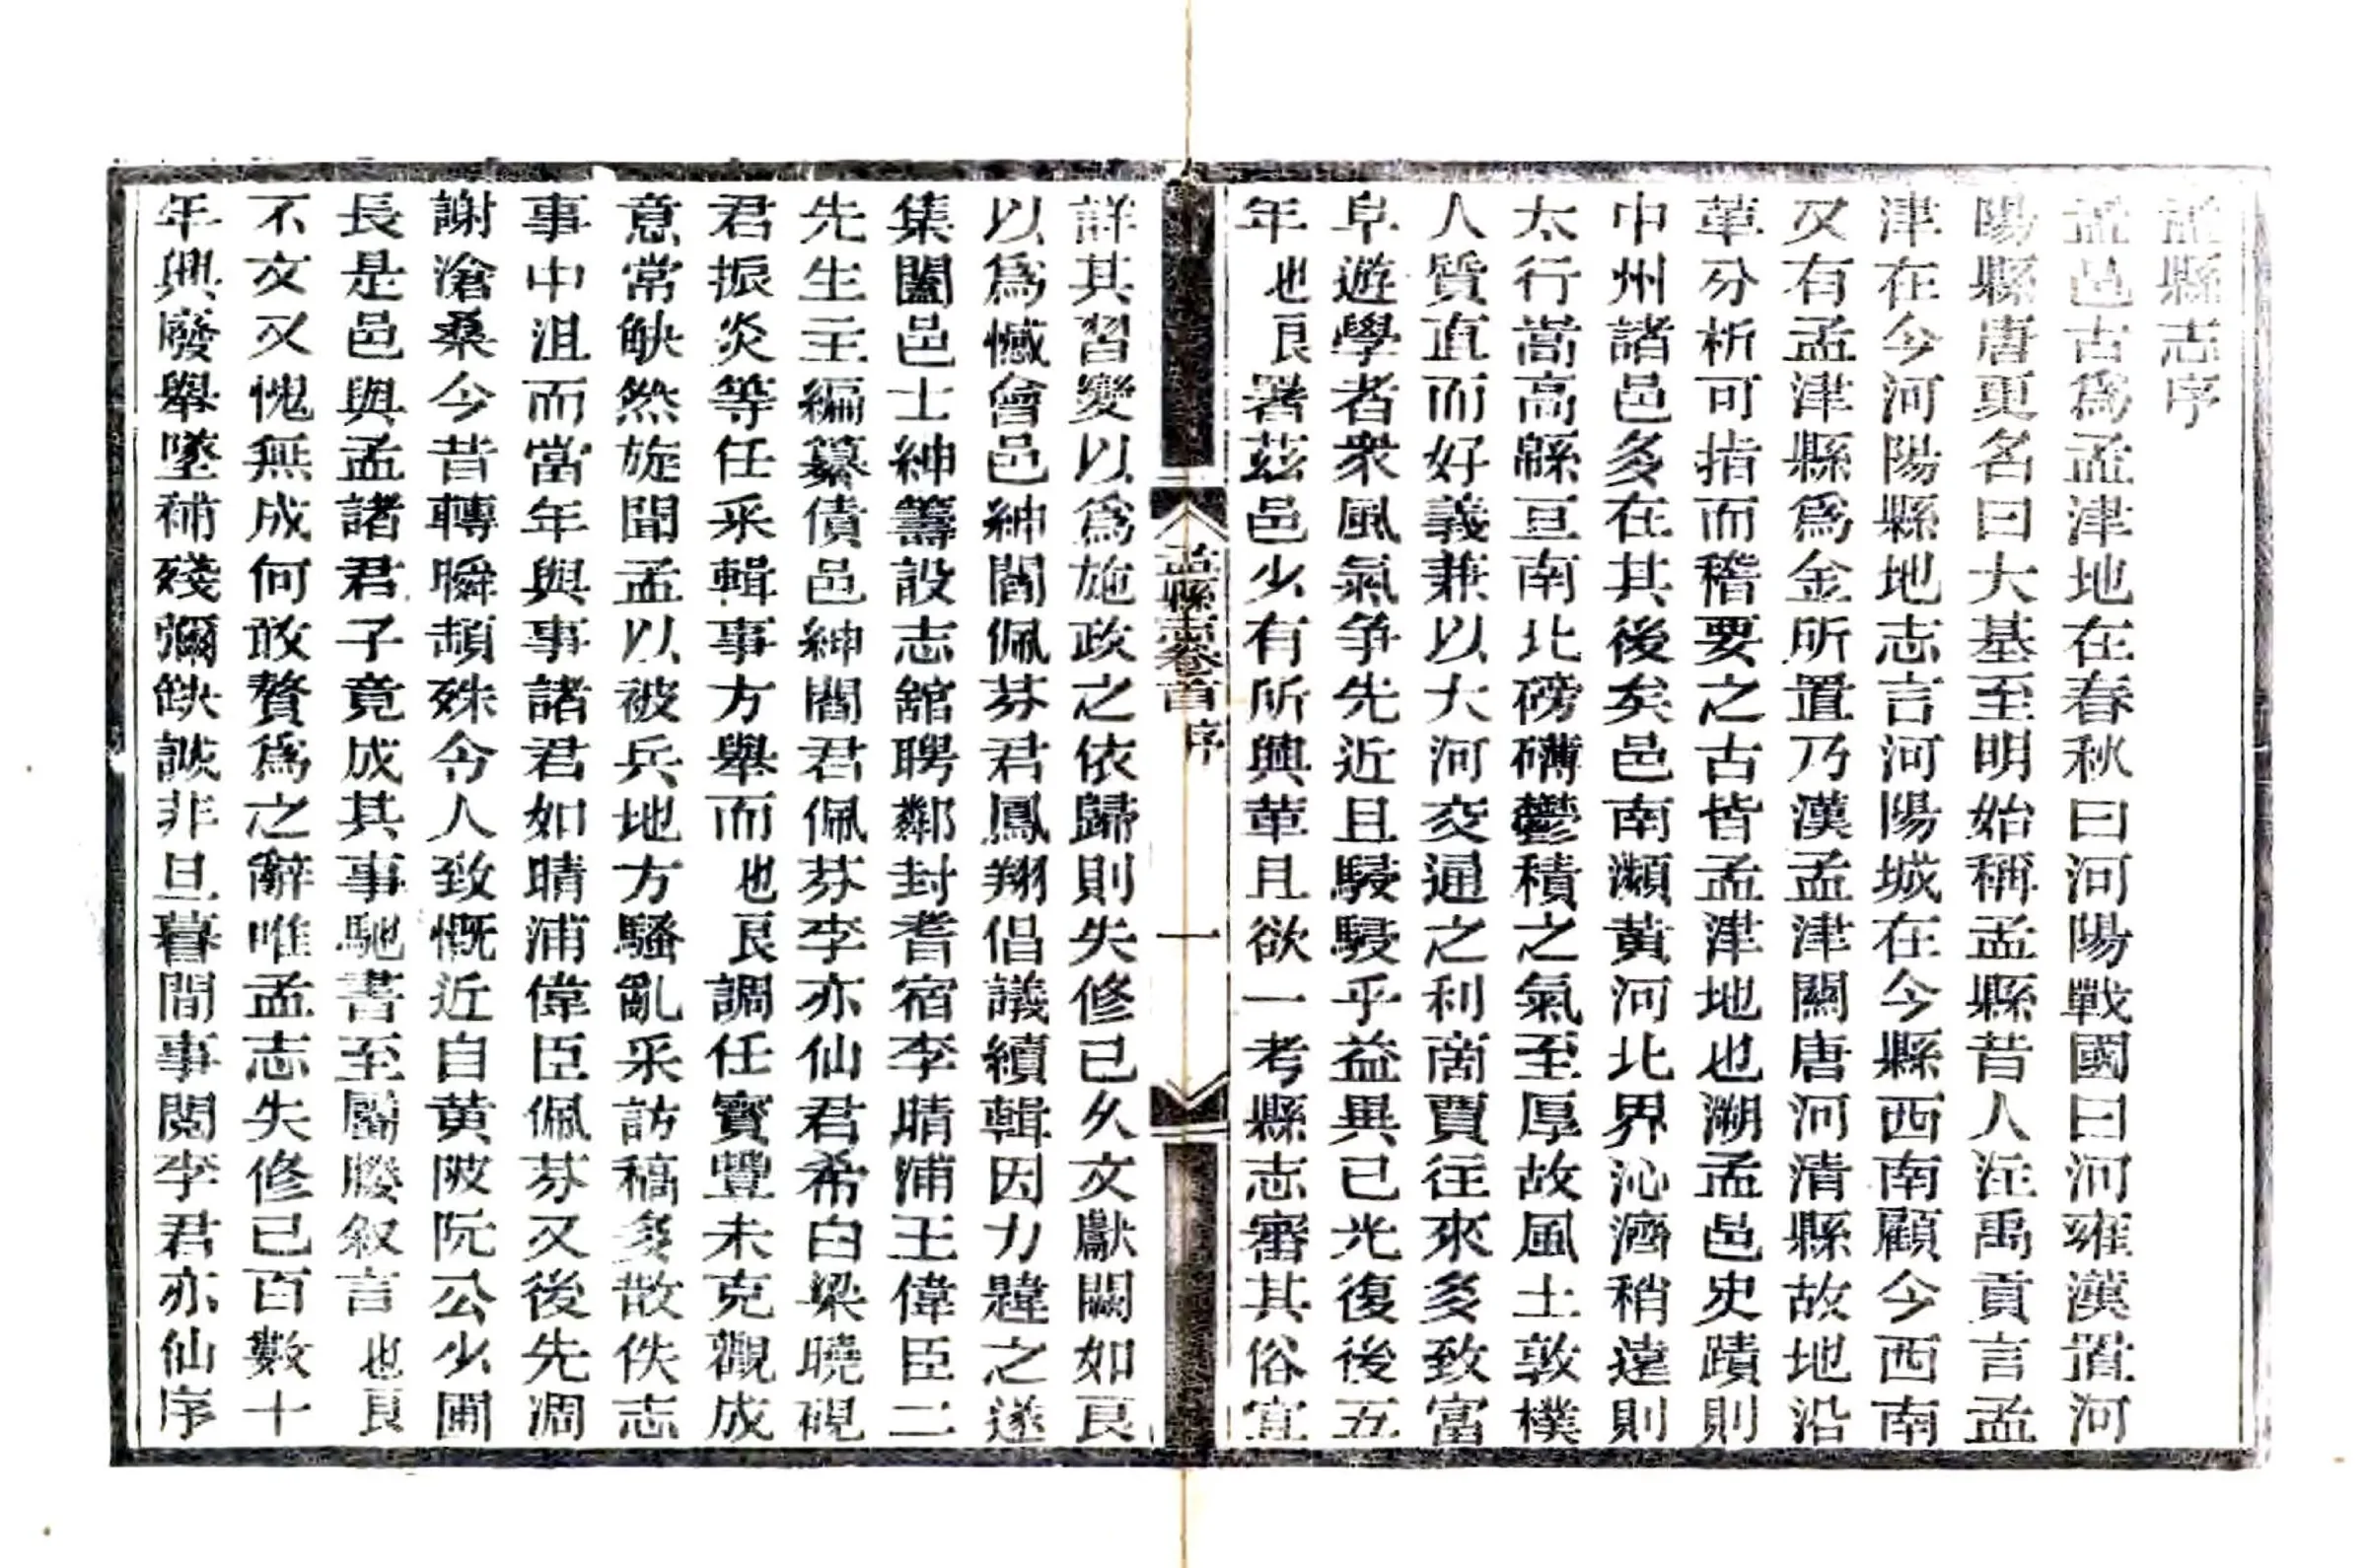 孟縣志序
孟邑古爲孟津地在春秋曰河陽戰國曰河雍漢置河
陽縣唐更名曰大基至明始稱孟縣昔人注禹貢言孟
津在今河陽縣地志言河陽城在今縣西南顧今西南
又有孟津縣爲金所置乃漢孟津關唐河清縣故地沿
革分析可指而稽要之古皆孟津地也溯孟邑史蹟則
中州諸邑多在其後矣邑南瀕黃河北界沁濟稍遠則
太行嵩高緜亘南北磅礴鬱積之氣至厚故風土敦樸
人質直而好義兼以大河交通之利商賈往來多致富
阜遊學者衆風氣爭先近且駸駸乎益異已光復後五
年也良署茲邑少有所興革且欲一考縣志審其俗宜
孟縣志卷首序 一
詳其習變以爲施政之依歸則失修已久文獻闕如良
以爲憾會邑紳閻佩芬君鳳翔倡議續輯因力韙之遂
集闔邑士紳籌設志舘聘鄰封耆宿李晴浦王偉臣二
先生主編纂債邑紳閻君佩芬李亦仙君希白梁曉硯
君振炎等任采輯事方舉而也良調任寶豐未克觀成
意常缺然旋聞孟以被兵地方騷亂采訪稿多散佚志
事中沮而當年與事諸君如晴浦偉臣佩芬又後先凋
謝滄桑今昔轉瞬頓殊令人致慨近自黃陂阮公少圃
長是邑與孟諸君子竟成其事馳書至屬媵敘言也良
不文又愧無成何敢贅爲之辭唯孟志失修已百數十
年興廢舉墜補殘彌缺誠非旦暮間事閱李君亦仙序